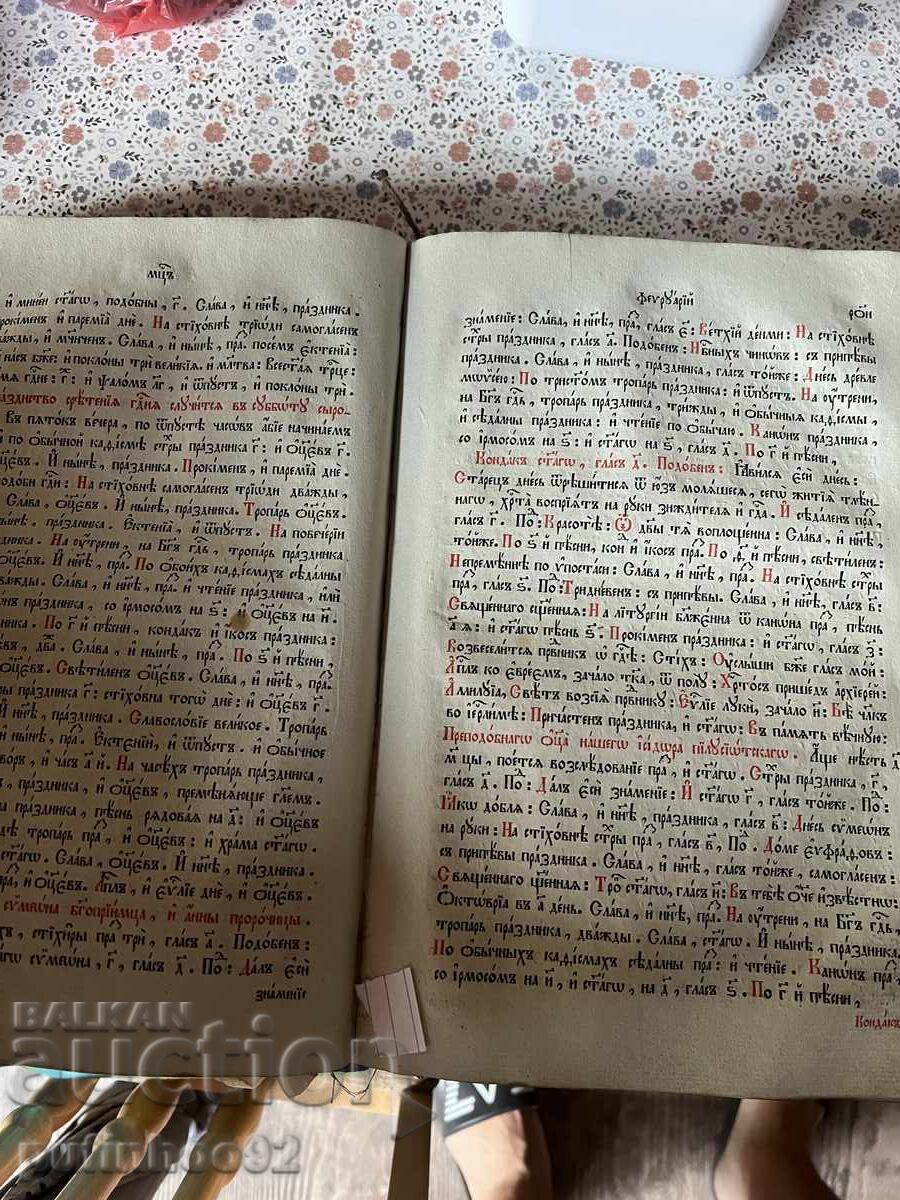 мц҃ъ
и҆ мине́и ст҃а́гѡ, подо́бны, г҃. Сла́ва, и҆ нн҃ѣ, пра́здника.
роки́менъ и҆ паремі́а днѐ. На стїхо́внѣ трїѡ́ди самогла́сенъ
ва́жды, и҆ мч҃нченъ. Сла́ва, и҆ ны́нѣ, пра҃. посе́мъ є҆ктенїа̀:
и҆ поклѡ́ны трѝ вели̑кїѧ, и҆ мл҃тва: Всест҃а́ѧ трⷪ҇це:
и҆ ѱало́мъ л҃г, и҆ ѿпꙋ́стъ, и҆ поклѡ́ны трѝ.
срѣ́тенїѧ гдⷭ҇нѧ слꙋчи́тсѧ въ сꙋббѡ́тꙋ сыро-
Въ пѧто́къ ве́чера, по ѿпꙋ́стѣ часѡ́въ а҆́бїе начина́емъ
и҆ по ѻ҆бы́чной каѳі́смѣ стр҃ы пра́здника г҃: и҆ ѻ҆ц҃є́въ г҃.
И҆ ны́нѣ, пра́здника. Проки́менъ, и҆ паремі́а днѐ.
На стїхо́внѣ самогла́сенъ трїѡ́ди два́жды,
Сла́ва, ѻ҆ц҃є́въ. И҆ ны́нѣ, пра́здника. Тропа́рь ѻ҆ц҃є́въ.
пра́здника. Є҆ктенїа̀, и҆ ѿпꙋ́стъ. На повече́рїи
На ᲂу҆́трени, на Бг҃ъ гдⷭ҇ь, тропа́рь пра́здника
И҆ нн҃ѣ, пра҃. По ѻ҆бои́хъ каѳі́смахъ сѣда́льны
Сла́ва, и҆ нн҃ѣ, пра҃. и҆ чте́нїе пра́здника, и҆лѝ
пра́здника, со і҆рмосо́мъ на ѕ҃: и҆ ѻ҆ц҃є́въ на и҃.
По г҃ й пѣ́сни, конда́къ и҆ і҆́косъ пра́здника:
Сла́ва, и҆ ны́нѣ, пра҃. По ѕ҃ й пѣ́сни,
ѻ҆ц҃є́въ. Свѣти́ленъ ѻ҆ц҃є́въ. Сла́ва, и҆ нн҃ѣ, пра҃.
пра́здника г҃: стїхѡ́вна тогѡ̀ днѐ: и҆ ѻ҆ц҃є́въ г҃.
И҆ нн҃ѣ, пра́здника. Славосло́вїе вели́кое. Тропа́рь
и҆ ны́нѣ, пра҃. Є҆ктенїи̑, и҆ ѿпꙋ́стъ. и҆ ѻ҆бы́чное
и҆ ча́съ а҃ й. На часѣ́хъ тропа́рь пра́здника,
пра́здника, и҆ ѻ҆ц҃є́въ, премѣнѧ́юще гл҃емъ.
пра́здника, пѣ́снь рѧдова́ѧ на д҃: и҆ ѻ҆ц҃є́въ
тропа́рь пра҃, и҆ ѻ҆ц҃є́въ: и҆ хра́ма ст҃а́гѡ.
Сла́ва, ѻ҆ц҃є́въ. И҆ нн҃ѣ, пра́здника.
и҆ ѻ҆ц҃є́въ. А҆пⷭ҇лъ, и҆ є҆ѵⷢ҇лїе днѐ, и҆ ѻ҆ц҃є́въ.
сѷмеѡ́на бг҃опрїи́мца, и҆ а҆́нны проро́чицы.
стїхи̑ры пра҃ трѝ, гла́съ а҃. Подо́бенъ:
сѷмеѡ́на, г҃, гла́съ д҃. Под҃: Да́лъ є҆сѝ
зна́менїе
феврꙋа́рїй
рѻ҃и
зна́менїе: Сла́ва, и҆ нн҃ѣ, пра҃, гла́съ є҃: Ве́тхїй де́ньми: На стїхо́внѣ
стр҃ы пра́здника, гла́съ а҃. Подо́бенъ: Нбⷭ҇ныхъ чинѡ́въ: съ припѣ́вы
пра́здника. Сла́ва, и҆ ны́нѣ, пра́здника, гла́съ то́йже: Дне́сь дре́вле
мѡѷсе́ю: По трист҃о́мъ тропа́рь пра́здника: и҆ ѿпꙋ́стъ. На ᲂу҆́трени,
на Бг҃ъ гдⷭ҇ь, тропа́рь пра́здника, три́жды, и҆ ѻ҆бы̑чныѧ каѳі́смы,
и҆ сѣда̑льны пра́здника: и҆ чте́нїе по ѻ҆бы́чаю. Канѡ́нъ пра́здника,
со і҆рмосо́мъ на ѕ҃: и҆ ст҃а́гѡ на ѕ҃, гла́съ д҃. По г҃ й пѣ́сни,
Конда́къ ст҃а́гѡ, гла́съ д҃. Подо́бенъ: Ꙗ҆ви́лсѧ є҆сѝ дне́сь:
Ста́рецъ дне́сь ѿрѣши́тисѧ ѿ ᲂу҆́зъ молѧ́шесѧ, сегѡ̀ житїѧ̀ тлѣ́н-
нагѡ, хрⷭ҇та̀ воспрїѧ́тъ на рꙋ́ки зижди́телѧ и҆ гдⷭ҇а. И҆ сѣда́ленъ пра҃,
гла́съ г҃. Под҃: Красотѣ̀: Ѿ дв҃ы тѧ̀ воплоще́нна: Сла́ва, и҆ нн҃ѣ,
то́йже. По ѕ҃ й пѣ́сни, кон҃д и҆ і҆́косъ пра҃. По ѳ҃ й пѣ́сни, свѣти́ленъ:
Непремѣ́нне по ѵ҆поста́си: Сла́ва, и҆ нн҃ѣ, пра҃. На стїхо́внѣ стр҃ы
пра҃, гла́съ ѕ҃. Под҃: Тридне́венъ: съ припѣ́вы. Сла́ва, и҆ нн҃ѣ, гла́съ в҃:
Свѧще́ннагѡ сщ҃е́ннаѧ: На лїтꙋргі́и бл҃жє́нна ѿ канѡ́на пра҃, пѣ́снь
а҃ ѧ: и҆ ст҃а́гѡ пѣ́снь ѕ҃. Проки́менъ пра́здника: и҆ ст҃а́гѡ, гла́съ з҃:
Возвесели́тсѧ првⷣникъ ѡ҆ гдⷭ҇ѣ: Сті́хъ: Оу҆слы́ши бж҃е гла́съ мо́й:
А҆пⷭ҇лъ ко є҆вре́емъ, зача́ло тк҃а, ѿ полꙋ̀: Хрⷭ҇то́съ прише́дъ а҆рхїере́й:
А҆ллилꙋ́їа, Свѣ́тъ возсїѧ̀ првⷣникꙋ: Є҆ѵⷢ҇лїе лꙋкѝ, зача́ло и҃: Бѣ̀ чл҃къ
во і҆ерⷭ҇ли́мѣ: Прича́стенъ пра́здника, и҆ ст҃а́гѡ: Въ па́мѧть вѣ́чнꙋю:
Преподо́бнагѡ ѻ҆ц҃а̀ на́шегѡ і҆сі́дѡра пилꙋсїѡ́тскагѡ. А҆́ще нѣ́сть д҃
м цы, пое́тсѧ возслѣ́дованїе пра҃, и҆ ст҃а́гѡ. Стр҃ы пра́здника, г҃,
гла́съ д҃. Под҃: Да́лъ є҆сѝ зна́менїе: И҆ ст҃а́гѡ г҃, гла́съ то́йже. Под҃:
Ꙗ҆́кѡ до́блѧ: Сла́ва, и҆ нн҃ѣ, пра́здника, гла́съ в҃: Дне́сь сѷмеѡ́нъ
на рꙋ́ки: На стїхо́внѣ стр҃ы пра҃, гла́съ в҃, Под҃. До́ме є҆ѵфра́ѳовъ:
съ припѣ́вы пра́здника. Сла́ва, и҆ нн҃ѣ, гла́съ то́йже, самогла́сенъ:
Свѧще́ннагѡ сщ҃е́ннаѧ: Тро҃ ст҃а́гѡ, гла́съ и҃: Въ тебѣ̀ ѻ҆́ч҃е и҆звѣ́стнѡ:
Ѻ҆ктѡ́врїа въ а҃ де́нь. Сла́ва, и҆ нн҃ѣ, пра҃. На ᲂу҆́трени, на Бг҃ъ гдⷭ҇ь,
тропа́рь пра́здника, два́жды. Сла́ва, ст҃а́гѡ. И҆ ны́нѣ, пра́здника.
По ѻ҆бы́чныхъ каѳі́смахъ сѣда̑льны пра҃: и҆ чте́нїе. Канѡ́нъ пра҃,
со і҆рмосо́мъ на и҃, и҆ ст҃а́гѡ, на д҃, гла́съ ѕ҃. По г҃ й пѣ́сни,
Конда́къ
BALKAN
auction
putinhoo92